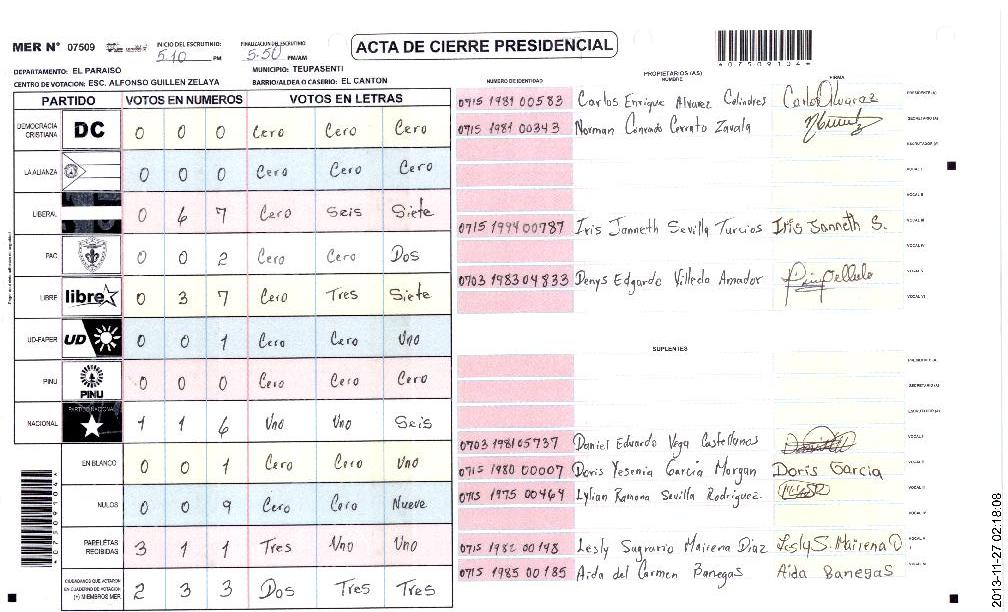 MER N° 07509
INICIO DEL ESCRUTINIO: 5:10 PM
FINALIZACION DEL ESCRUTINIO 5:50 PM/AM
ACTA DE CIERRE PRESIDENCIAL
DEPARTAMENTO: EL PARAISO
MUNICIPIO: TEUPASENTI
CENTRO DE VOTACION: ESC. ALFONSO GUILLEN ZELAYA
BARRIO/ALDEA O CASERIO: EL CANTON
PARTIDO VOTOS EN NUMEROS VOTOS EN LETRAS
DEMOCRACIA CRISTIANA DC 0 0 0 Cero Cero Cero
LA ALIANZA 0 0 0 Cero Cero Cero
LIBERAL 0 6 7 Cero Seis Siete
PAC 0 0 2 Cero Cero Dos
LIBRE libre 0 3 7 Cero Tres Siete
UD-FAPER UD 0 0 1 Cero Cero Uno
PINU PINU 0 0 0 Cero Cero Cero
NACIONAL PARTIDO NACIONAL 1 1 6 Uno Uno Seis
EN BLANCO 0 0 1 Cero Cero Uno
NULOS 0 0 9 Cero Cero Nueve
PAPELETAS RECIBIDAS 3 1 1 Tres Uno Uno
CIUDADANOS QUE VOTARON EN CUADERNO DE VOTACION (+) MIEMBROS MER 2 3 3 Dos Tres Tres
NUMERO DE IDENTIDAD
PROPIETARIOS (AS)
NOMBRE
FIRMA
0715 1981 00583 Carlos Enrique Alvarez Colindres Carlos Alvarez PRESIDENTE (A)
0715 1981 00343 Norman Conrado Cerrato Zavala SECRETARIO (A)
ESCRUTADOR (A)
VOCAL I
VOCAL II
0715 1994 00787 Iris Janneth Sevilla Turcios Iris Janneth S. VOCAL III
VOCAL IV
0703 1983 04833 Denys Edgardo Villeda Amador VOCAL V
VOCAL VI
SUPLENTES
PRESIDENTE (A)
SECRETARIO (A)
ESCRUTADOR (A)
0703 1981 05737 Daniel Eduardo Vega Castellanos VOCAL I
0715 1980 00007 Doris Yesenia Garcia Morgan Doris Garcia VOCAL II
0715 1975 00464 Lylian Ramona Sevilla Rodriguez VOCAL III
VOCAL IV
0715 1982 00148 Lesly Sugrario Mairena Diaz Lesly S. Mairena D. VOCAL V
0715 1985 00185 Aida del Carmen Banegas Aida Banegas VOCAL VI
2013-11-27 02:18:08